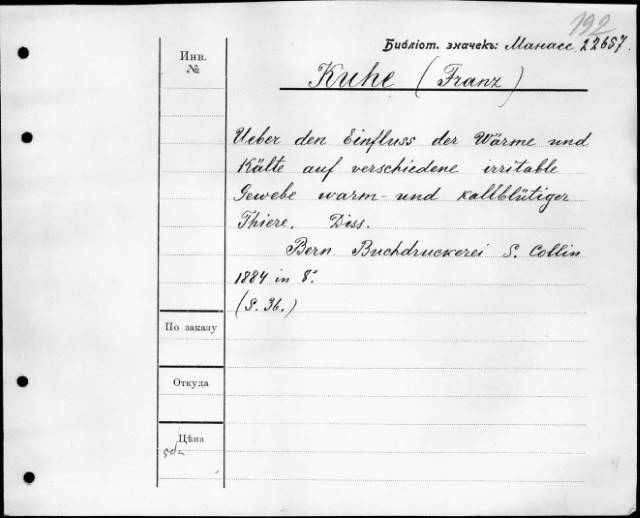 192
Библіот. значекъ: Манасс. 22657.
Инв.
№
Kuhe (Franz)
Ueber den Einfluss der Wärme und
Kälte auf verschiedene irritable
Gewebe warm- und kaltblütiger
Thiere. Diss.
Bern Buchdruckerei S. Collin
1884 in 8°
(S. 36.)
По заказу
Откуда
Цѣна